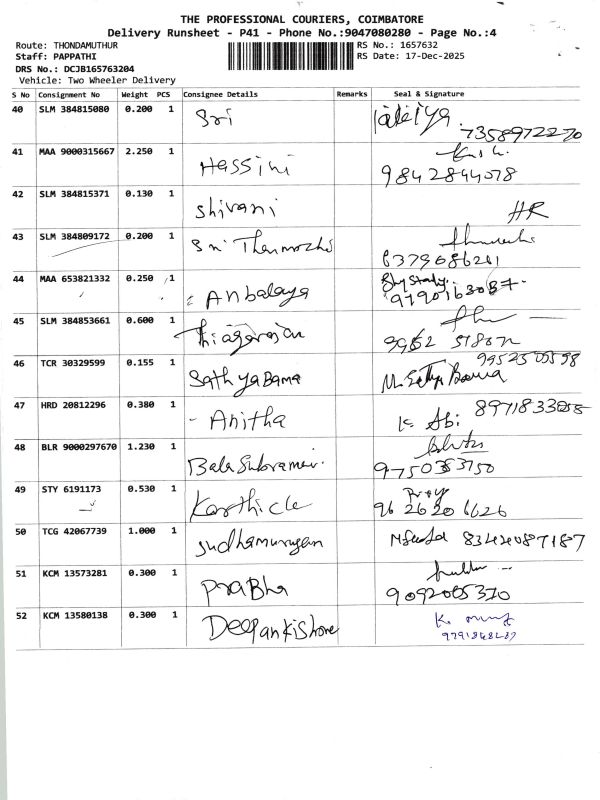 THE PROFESSIONAL COURIERS, COIMBATORE
Delivery Runsheet - P41 - Phone No.:9047080280 - Page No.:4
Route: THONDAMUTHUR RS No.: 1657632
Staff: PAPPATHI RS Date: 17-Dec-2025
DRS No.: DCJB165763204
Vehicle: Two Wheeler Delivery
S No Consignment No Weight PCS Consignee Details Remarks Seal & Signature
40 SLM 384815080 0.200 1 Sri
7358972270
41 MAA 9000315667 2.250 1 Hassini
9842844078
42 SLM 384815371 0.130 1 Shivani HR
43 SLM 384809172 0.200 1 Sri Thenmozhi
6379086261
44 MAA 653821332 0.250 1 Anbalaya
9790163087
45 SLM 384853661 0.600 1 Thiagarajan
46 TCR 30329599 0.155 1 Sathyabama
M. Sathya Bama
47 HRD 20812296 0.380 1 - Anitha K. Abi
48 BLR 9000297670 1.230 1 Bala Subramani
9750353750
49 STY 6191173 0.530 1 Karthick
96 26206626
50 TCG 42067739 1.000 1 Sudhamurugan
51 KCM 13573281 0.300 1 Prabha
52 KCM 13580138 0.300 1 Deepan Kishore